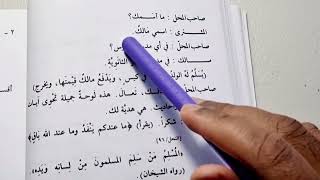 صاحب المحل : ما اسمك؟
المشتري : اسمي مالك.
صاحب المحل : في أي
مالك : في الثانوية.
(يسلم له في كيس ، ويدفع مالك قيمتها، ويخرج)
تعال. هذه لوحة جميلة تحوي
هي هدية لك
شكراً. (يقرأ) ﴿ما عندكم ينفد وما عند الله باق﴾
«المسلم من سلم المسلمون من لسانه ويده»
(رواه الشيخان).